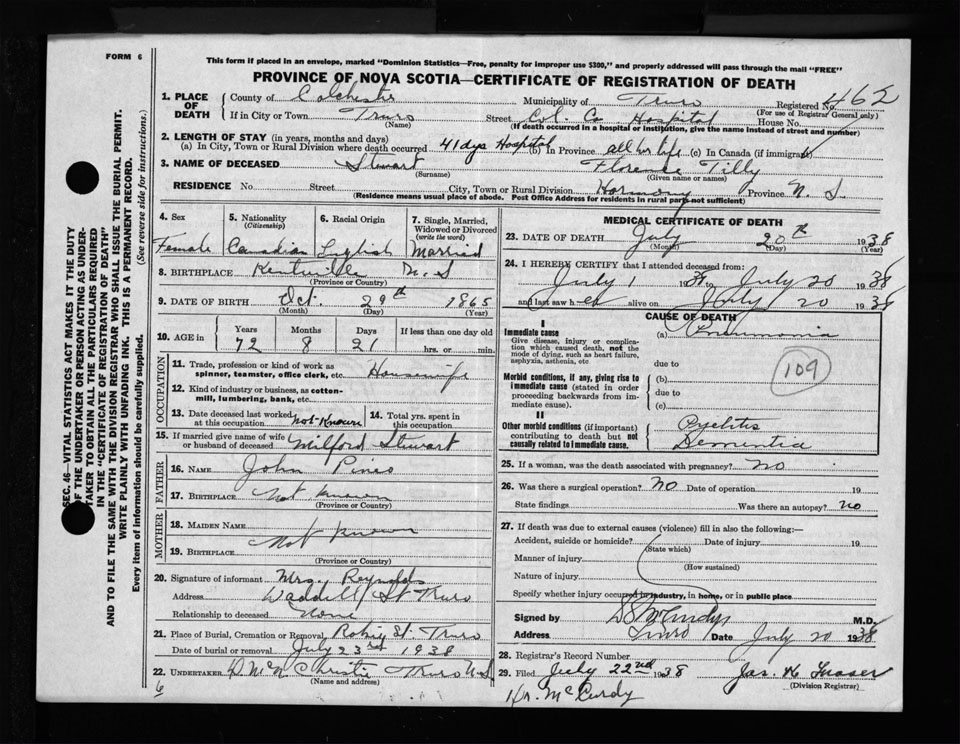 FORM 6
This form if placed in an envelope, marked "Dominion Statistics—Free, penalty for improper use $300," and properly addressed will pass through the mail "FREE"
PROVINCE OF NOVA SCOTIA—CERTIFICATE OF REGISTRATION OF DEATH
1. PLACE OF DEATH { County of Colchester Municipality of Truro Registered No. 462
(For use of Registrar General only)
If in City or Town Truro Street Col. Co Hospital House No.
(Name) (If death occurred in a hospital or institution, give the name instead of street and number)
2. LENGTH OF STAY (in years, months and days)
(a) In City, Town or Rural Division where death occurred 41 dys Hospital (b) In Province all her life (c) In Canada (if immigrant)
3. NAME OF DECEASED Stewart Florence Tilly
(Surname) (Given name or names)
RESIDENCE No. Street City, Town or Rural Division Harmony Province N. S.
(Residence means usual place of abode. Post Office Address for residents in rural parts not sufficient)
4. Sex 5. Nationality (Citizenship) 6. Racial Origin 7. Single, Married, Widowed or Divorced (write the word)
Female Canadian English Married
8. BIRTHPLACE Kentville N. S
(Province or Country)
9. DATE OF BIRTH Oct. 29th 1865
(Month) (Day) (Year)
10. AGE in { Years Months Days If less than one day old
72 8 21 hrs. or min.
OCCUPATION
11. Trade, profession or kind of work as spinner, teamster, office clerk, etc. Housewife
12. Kind of industry or business, as cotton-mill, lumbering, bank, etc.
13. Date deceased last worked at this occupation not-Known 14. Total yrs. spent in this occupation
15. If married give name of wife or husband of deceased Milford Stewart
FATHER
16. NAME John Pineo
17. BIRTHPLACE Not Known
(Province or Country)
MOTHER
18. MAIDEN NAME
Not Known
19. BIRTHPLACE
(Province or Country)
20. Signature of informant Mrs. Reynolds
Address Waddell St Truro
Relationship to deceased None
21. Place of Burial, Cremation or Removal Robie St. Truro
Date of burial or removal July 23rd 1938
22. UNDERTAKER D McN Christie Truro N S
(Name and address)
6
MEDICAL CERTIFICATE OF DEATH
23. DATE OF DEATH July 20th 1938
(Month) (Day) (Year)
24. I HEREBY CERTIFY that I attended deceased from:
July 1 1938 to July 20 1938
and last saw her alive on July 20 1938
CAUSE OF DEATH
I
Immediate cause (a) Pneumonia
Give disease, injury or complication which caused death, not the mode of dying, such as heart failure, asphyxia, asthenia, etc
due to
109
Morbid conditions, if any, giving rise to immediate cause (stated in order proceeding backwards from immediate cause).
(b)
due to
(c)
II
Other morbid conditions (if important) contributing to death but not causally related to immediate cause.
Pyelitis
Dementia
25. If a woman, was the death associated with pregnancy? No
26. Was there a surgical operation? No Date of operation 19
State findings Was there an autopsy? No
27. If death was due to external causes (violence) fill in also the following:—
Accident, suicide or homicide? Date of injury 19
(State which)
Manner of injury
(How sustained)
Nature of injury
Specify whether injury occurred in industry, in home, or in public place
Signed by M.D.
Address Truro Date July 20 1938
28. Registrar's Record Number
29. Filed July 22nd 1938 Jas. H Fraser
(Division Registrar)
Dr. McCurdy
SEC. 46—VITAL STATISTICS ACT MAKES IT THE DUTY
OF THE UNDERTAKER OR PERSON ACTING AS UNDER-
TAKER TO OBTAIN ALL THE PARTICULARS REQUIRED
IN THE "CERTIFICATE OF REGISTRATION OF DEATH"
AND TO FILE THE SAME WITH THE DIVISION REGISTRAR WHO SHALL ISSUE THE BURIAL PERMIT.
WRITE PLAINLY WITH UNFADING INK. THIS IS A PERMANENT RECORD.
Every item of information should be carefully supplied. (See reverse side for instructions.)